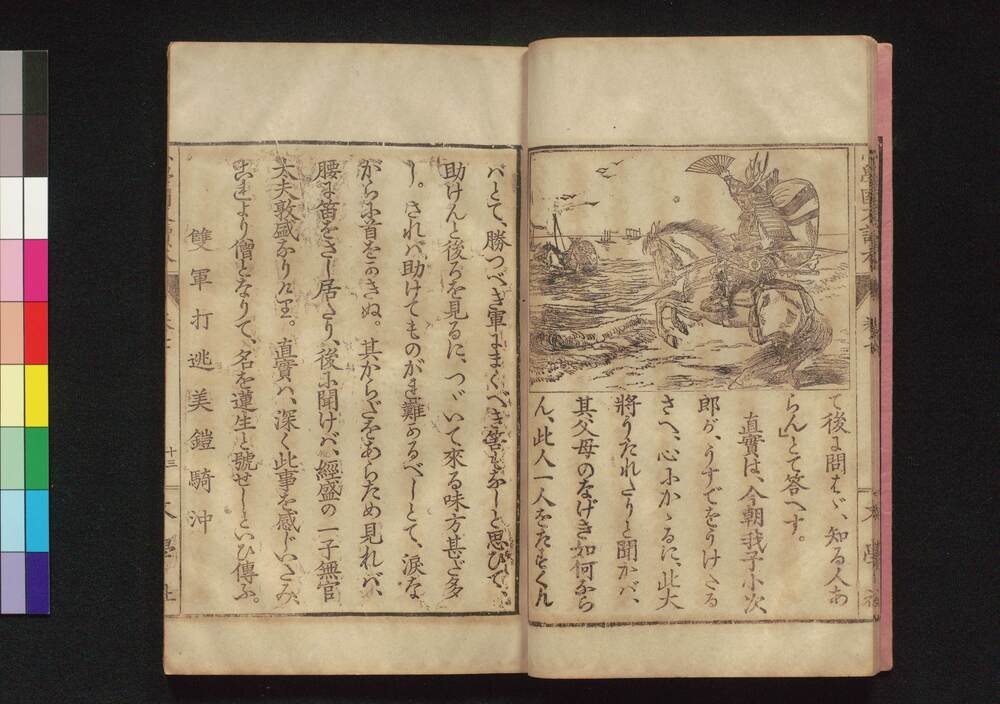 て後に問はゞ、知る人あ
らん」とて答へす。
直實は、今朝我子小次
郎が、うすでをうけたる
さへ、心にかゝるに、此大
將うたれたりと聞かバ、
其父母のなげき如何なら
ん、此人一人をたすくれ
バとて、勝つべき軍にまくべき筈もなしと思ひて、
助けんと後ろを見るに、つゞいて來る味方甚だ多
し。されバ、助けてものがれ難かるべしとて、涙な
がらに首をかきぬ。其からだをあらため見れバ、
腰に笛をさし居たり、後に聞けバ、經盛の一子無官
太夫敦盛なりけり。直實ハ、深く此事を感じいさみ、
これより僧となりて、名を蓮生と號せしといひ傳ふ。
雙軍打逃美鎧騎沖
十三
文學社